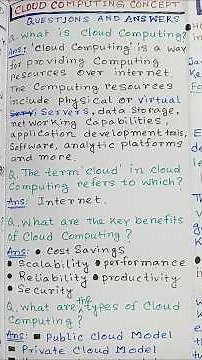 CLOUD COMPUTING CONCEPT
QUESTIONS AND ANSWERS
Q. what is Cloud Computing?
Ans: 'Cloud Computing' is a way
for providing Computing
resources over internet.
The Computing resources
include physical or virtual
Servers, data Storage,
networking Capabilities,
application development tools,
Software, analytic platforms
and more.
Q. The term 'cloud' in cloud
Computing refers to which?
Ans: Internet.
Q. what are the key benefits
of Cloud Computing?
Ans: • Cost Savings
• Scalability • performance
• Reliability • productivity
• Security
Q. what are the types of Cloud
Computing?
Ans: ■ Public Cloud Model
■ Private Cloud Model